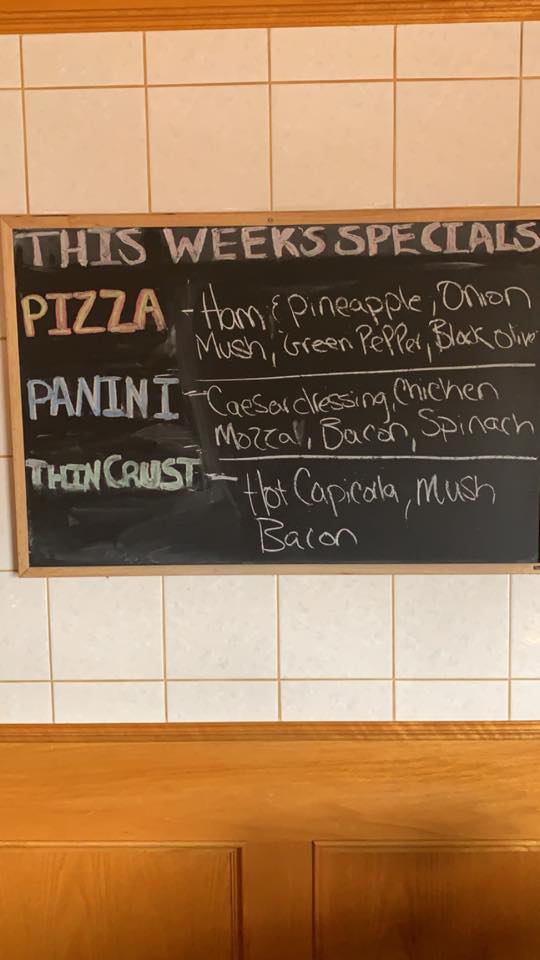 THIS WEEK'S SPECIALS
PIZZA - Ham & pineapple, Onion
Mush, Green PePPer, Black Olive
PANINI - Caesar dressing, Chicken
Mozza, Bacon, Spinach
THIN CRUST - Hot Capicolla, Mush
Bacon